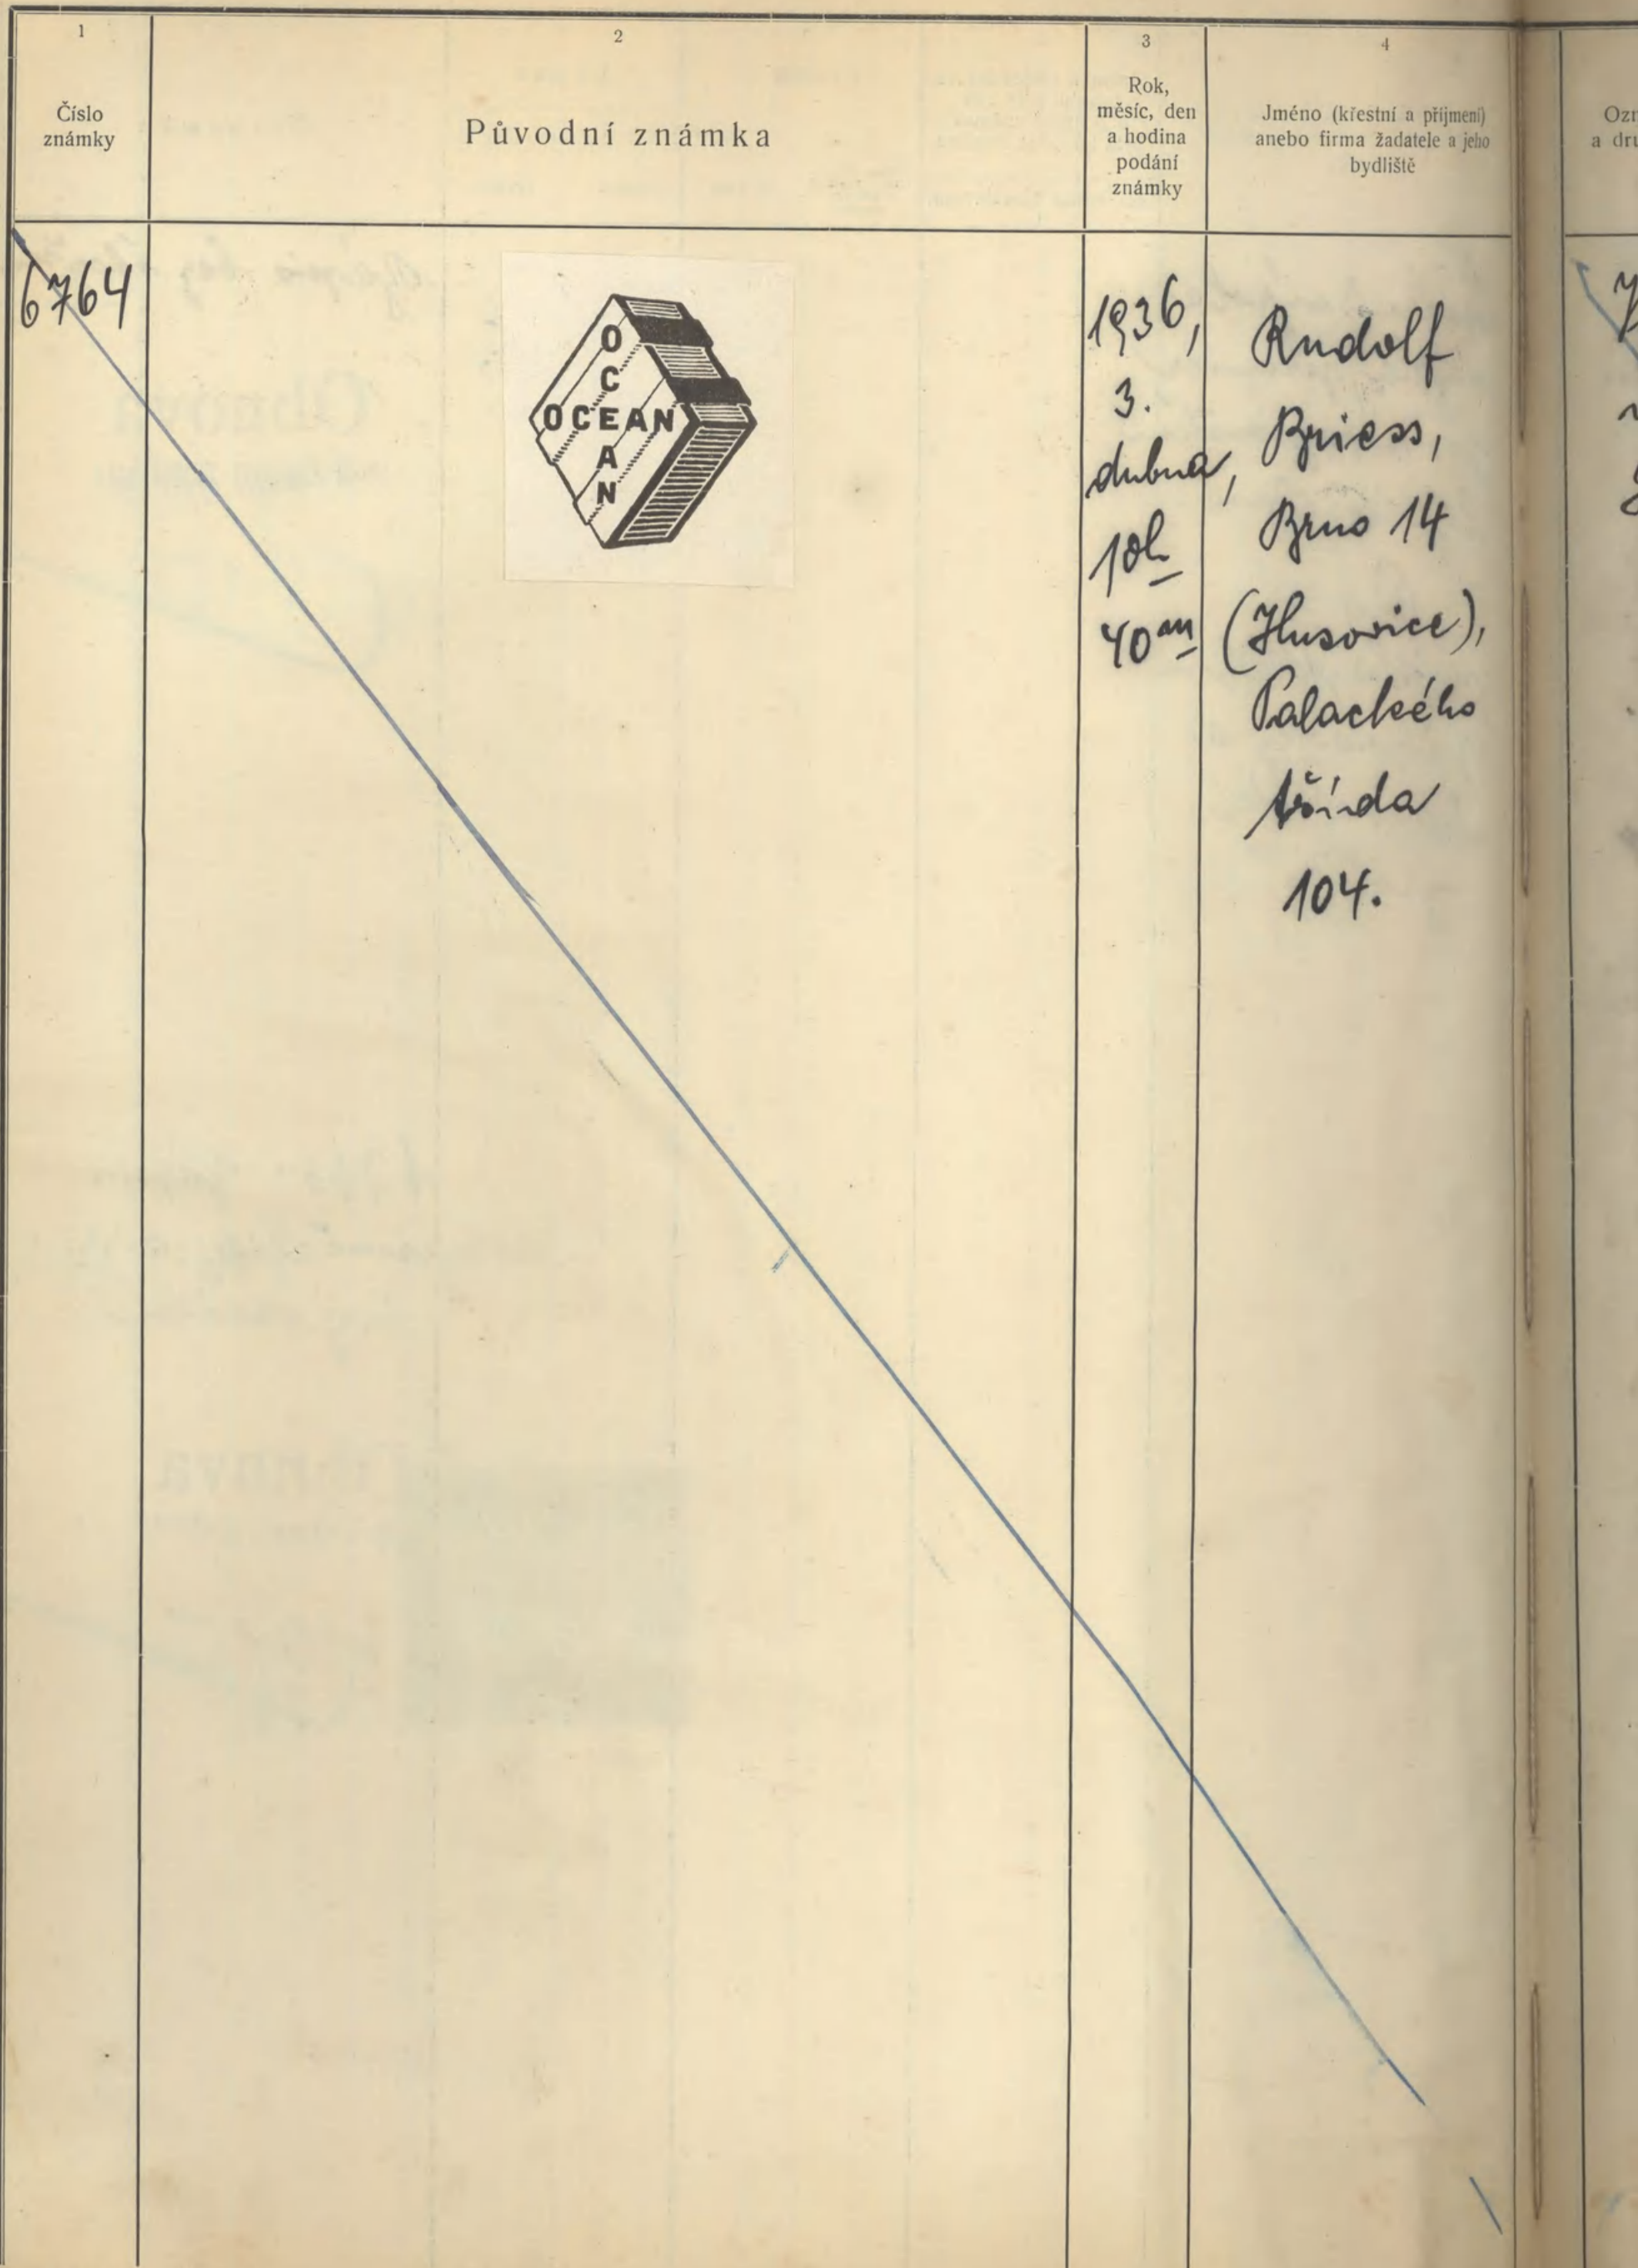 1
2
3
4
Číslo
známky
Původní známka
Rok,
měsíc, den
a hodina
podání
známky
Jméno (křestní a příjmení)
anebo firma žadatele a jeho
bydliště
6764
OCEAN
OCEAN
1936,
3.
dubna,
10h
40m
Rudolf
Briess,
Brno 14
(Husovice),
Palackého
třída
104.